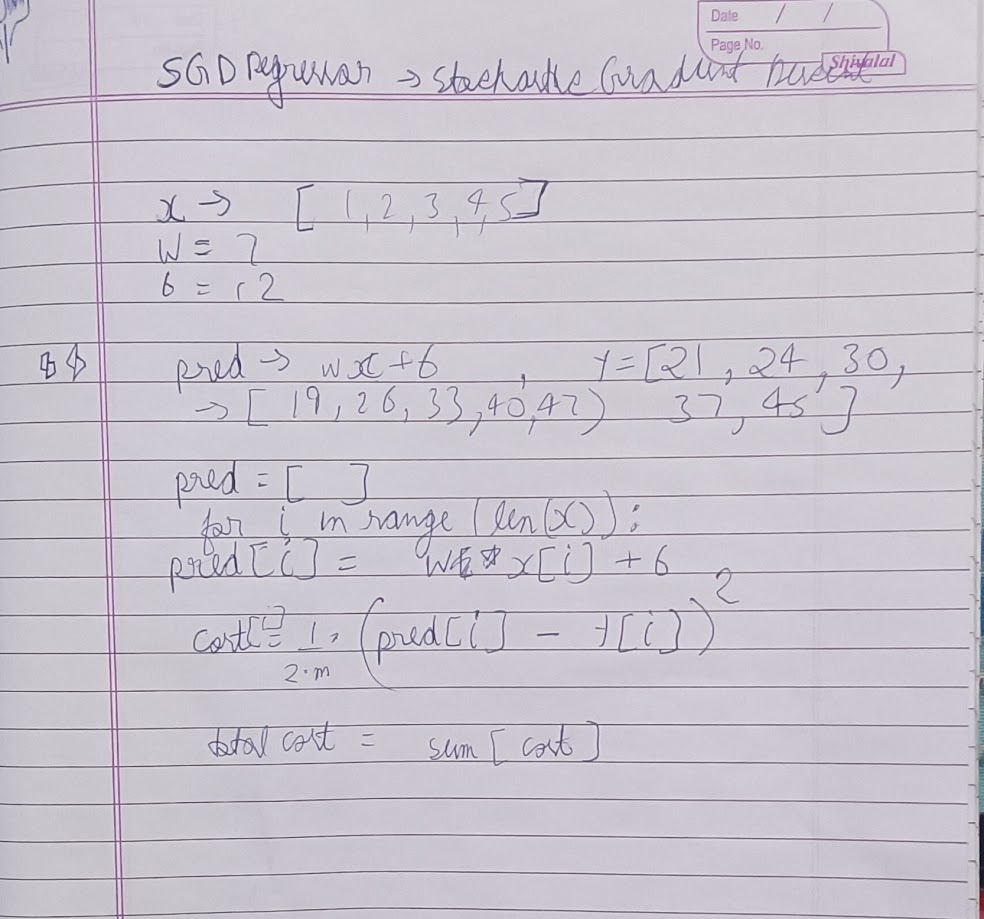 Date / /
Page No.
Shivalal
SGD Regressor → Stochastic Gradient Descent
x → [ 1, 2, 3, 4, 5 ]
W = 7
b = 12
pred → wx + b , Y = [21, 24, 30,
→ [ 19, 26, 33, 40, 47 ) 37, 45 ]
pred = [ ]
for i in range (len(x)):
pred [i] = w * x[i] + b
cost[i] = 1/2·m · (pred[i] - Y[i])²
total cost = sum [ cost ]